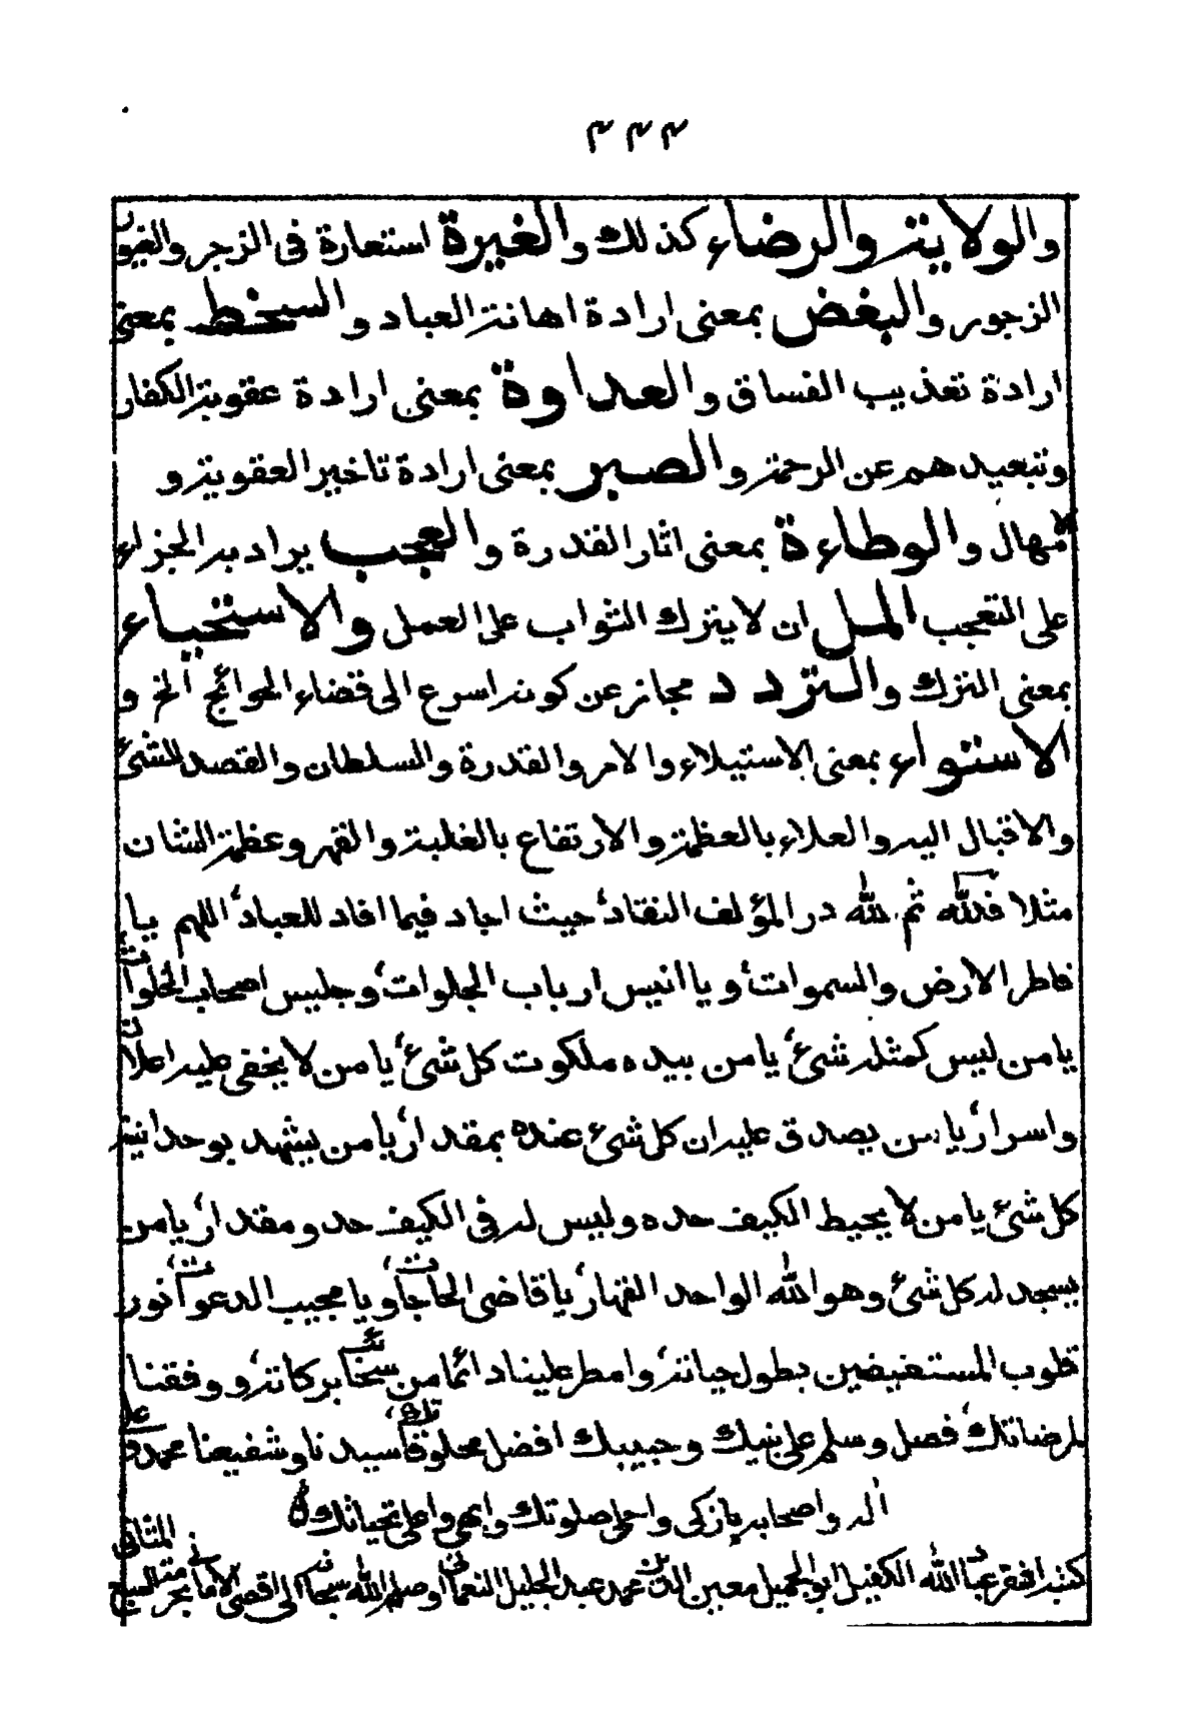 ٣٣٣
والولاية والرضاء كذلك والغيرة استعارة فى الزجر والغيور
الزجور والبغض بمعنى ارادة اهانة العباد والسخط بمعنى
ارادة تعذيب الفساق والعداوة بمعنى ارادة عقوبة الكفار
وتبعيدهم عن الرحمة والصبر بمعنى ارادة تاخير العقوبة و
الامهال والوطاءة بمعنى اثار القدرة والعجب يراد به الجزاء
على التعجب الملل ان لا يترك الثواب على العمل والاستحياء
بمعنى الترك والتردد مجاز عن كونه اسرع الى قضاء الحوائج الخ و
الاستواء بمعنى الاستيلاء والامر والقدرة والسلطان والقصد للشئ
والاقبال اليه والعلاء بالعظمة والارتفاع بالغلبة والقهر وعظمة الشان
مثلا فلله ثم لله در المؤلف النقاد، حيث اجاد فيما افاد للعباد، اللهم يا
فاطر الارض والسموات، ويا انيس ارباب الجلوات، وجليس اصحاب الخلوات
يا من ليس كمثله شئ، يا من بيده ملكوت كل شئ، يا من لا يخفى عليه اعلان
واسرار، يا من يصدق عليه ان كل شئ عنده بمقدار، يا من يشهد بوحدانيته
كل شئ يا من لا يحيط الكيف حده وليس له فى الكيف حد ومقدار، يا من
يسجد له كل شئ وهو الله الواحد القهار، يا قاضى الحاجات، ويا مجيب الدعوات، نور
قلوب المستفيضين بطول حياته، وامطر علينا دائما من سحائب بركاته، ووفقنا
لمرضاتك، فصل وسلم على نبيك وحبيبك افضل مخلوقاتك، سيدنا وشفيعنا محمد وعلى
اله واصحابه بازكى واحلى صلوتك وابهى واعلى تحياتك
كتبه افقر عباد الله الكفيل ابو الجميل معين الدين محمد عبد الجليل النعمانى اوصله الله سبحانه الى اقصى الامانى بحرمة السبع المثانى